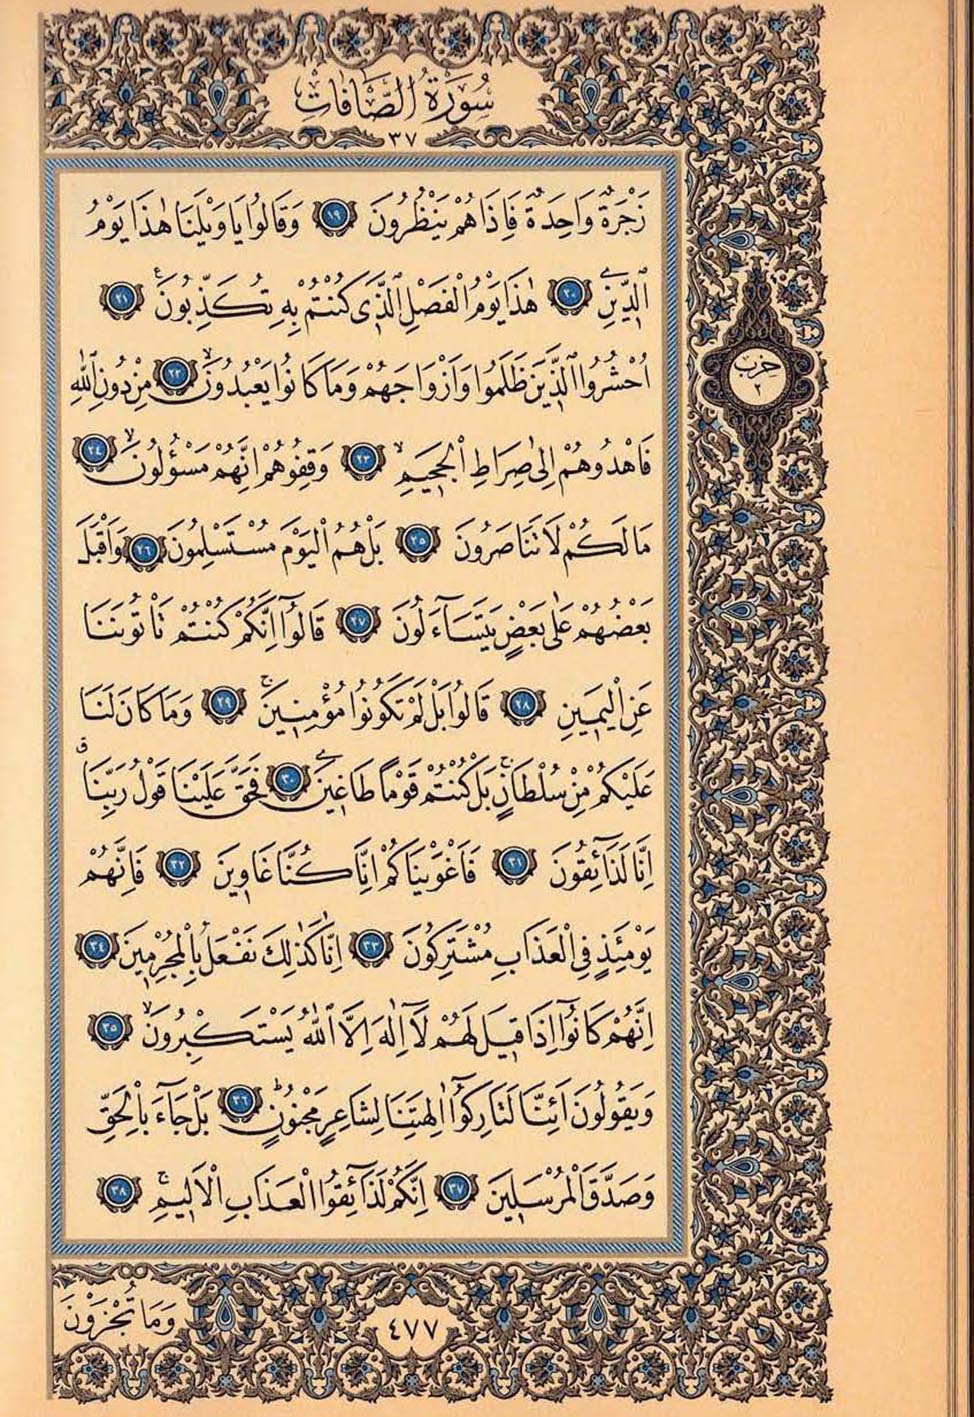 سُورَةُ الصَّافَّاتِ
٣٧
زَجْرَةٌ وَاحِدَةٌ فَاِذَا هُمْ يَنْظُرُونَ ١٩ وَقَالُوا يَا وَيْلَنَا هٰذَا يَوْمُ
الدّ۪ينِ ٢٠ هٰذَا يَوْمُ الْفَصْلِ الَّذ۪ي كُنْتُمْ بِه۪ تُكَذِّبُونَ ٢١
اُحْشُرُوا الَّذ۪ينَ ظَلَمُوا وَاَزْوَاجَهُمْ وَمَا كَانُوا يَعْبُدُونَۙ ٢٢ مِنْ دُونِ اللّٰهِ
فَاهْدُوهُمْ اِلٰى صِرَاطِ الْجَح۪يمِۙ ٢٣ وَقِفُوهُمْ اِنَّهُمْ مَسْؤُلُونَۙ ٢٤
مَا لَكُمْ لَا تَنَاصَرُونَ ٢٥ بَلْ هُمُ الْيَوْمَ مُسْتَسْلِمُونَ ٢٦ وَاَقْبَلَ
بَعْضُهُمْ عَلٰى بَعْضٍ يَتَسَٓاءَلُونَ ٢٧ قَالُٓوا اِنَّكُمْ كُنْتُمْ تَأْتُونَنَا
عَنِ الْيَم۪ينِ ٢٨ قَالُوا بَلْ لَمْ تَكُونُوا مُؤْمِن۪ينَۚ ٢٩ وَمَا كَانَ لَنَا
عَلَيْكُمْ مِنْ سُلْطَانٍۚ بَلْ كُنْتُمْ قَوْمًا طَاغ۪ينَ ٣٠ فَحَقَّ عَلَيْنَا قَوْلُ رَبِّنَاۗ
اِنَّا لَذَٓائِقُونَ ٣١ فَاَغْوَيْنَاكُمْ اِنَّا كُنَّا غَاو۪ينَ ٣٢ فَاِنَّهُمْ
يَوْمَئِذٍ فِي الْعَذَابِ مُشْتَرِكُونَ ٣٣ اِنَّا كَذٰلِكَ نَفْعَلُ بِالْمُجْرِم۪ينَ ٣٤
اِنَّهُمْ كَانُٓوا اِذَا ق۪يلَ لَهُمْ لَٓا اِلٰهَ اِلَّا اللّٰهُ يَسْتَكْبِرُونَۙ ٣٥
وَيَقُولُونَ اَئِنَّا لَتَارِكُٓوا اٰلِهَتِنَا لِشَاعِرٍ مَجْنُونٍۜ ٣٦ بَلْ جَٓاءَ بِالْحَقِّ
وَصَدَّقَ الْمُرْسَل۪ينَ ٣٧ اِنَّكُمْ لَذَٓائِقُوا الْعَذَابِ الْاَل۪يمِۚ ٣٨
حزب
٢
وَمَا تُجْزَوْنَ
٤٧٧